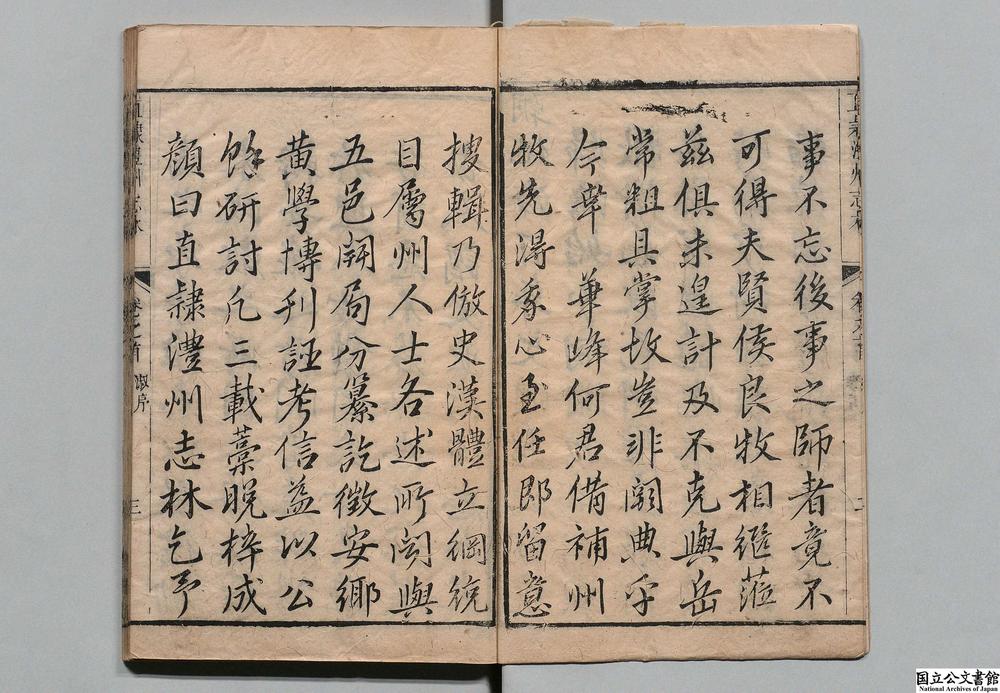 事不忘後事之師者竟不
可得夫賢侯良牧相繼蒞
茲俱未遑計及不克與岳
常粗具掌故豈非闕典乎
今年華峰何君偹補州
牧先淂我心至任即留意
搜輯乃倣史漢體立綱統
目屬州人士各述所聞與
五邑開局份纂訖徵安鄉
黃學博刊誣考信益以公
餘研討凢三載藁脫梓成
顏曰直隸澧州志林乞予
直隸澧州志林
卷之首
三
国立公文書館
National Archives of Japan